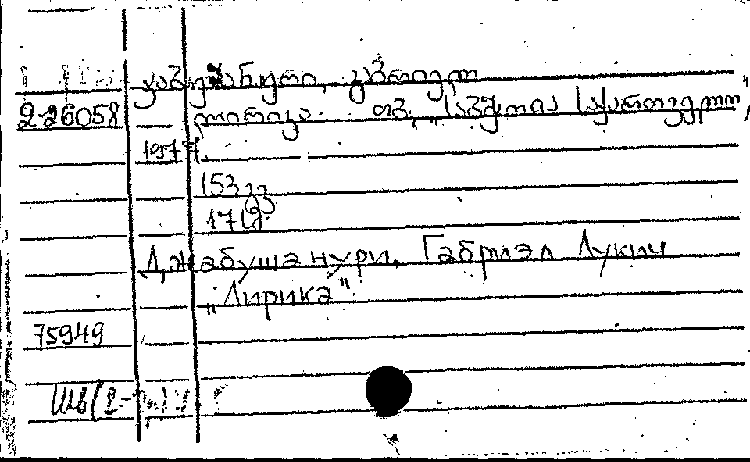 ჯაბუშანური, გაბრიელ
2-26058 ლირიკა. თბ., „საბჭოთა საქართველო",
1957წ.
153გვ
17სმ
Джабушанури, Габриэл Лукич
„Лирика"
75949